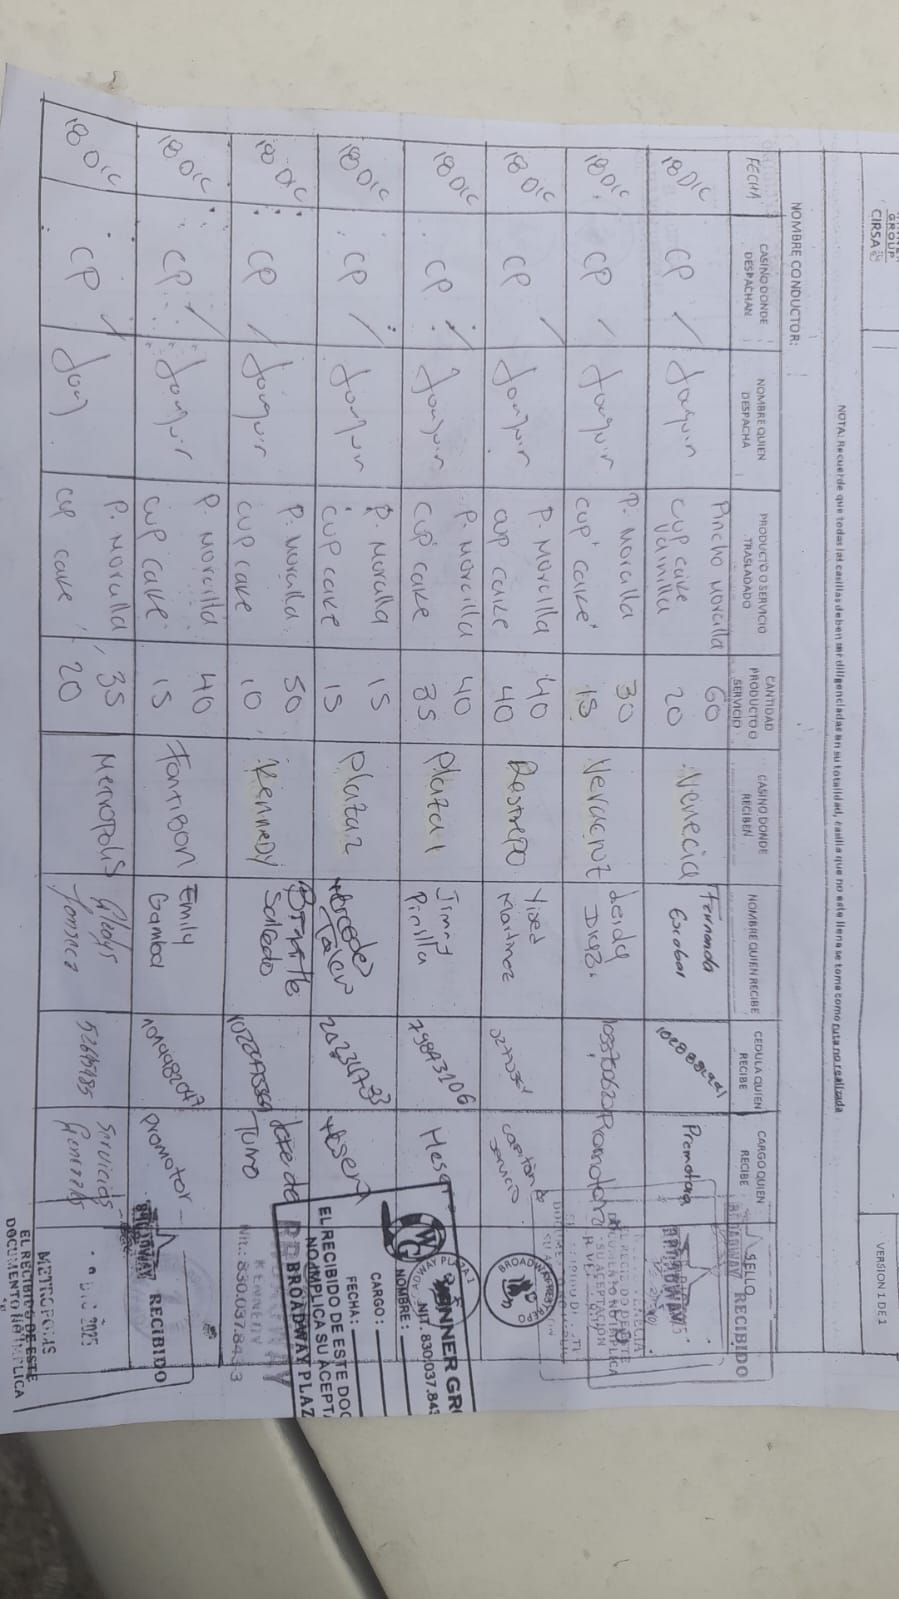 WINNER
GROUP
CIRSA
VERSION 1 DE 1
NOTA: Recuerde que todas las casillas deben ser diligenciadas en su totalidad, casilla que no este llena se toma como ruta no realizada
NOMBRE CONDUCTOR:
FECHA
CASINO DONDE DESPACHAN
NOMBRE QUIEN DESPACHA
PRODUCTO O SERVICIO TRASLADADO
CANTIDAD PRODUCTO O SERVICIO
CASINO DONDE RECIBEN
NOMBRE QUIEN RECIBE
CEDULA QUIEN RECIBE
CARGO QUIEN RECIBE
SELLO
RECIBIDO
18 DIC CP Joaquin Pincho Morcilla 60 Venecia Fernanda Escobar Promotora
cup cake vainilla 20
BROADWAY
18 DIC CP Joaquin P. Morcilla 30 Veracruz Leidy Diaz Promotora
cup cake 15
18 DIC CP Joaquin P. Morcilla 40 Restrepo Yised Martinez
cup cake 40
BROADWAY
18 DIC CP Joaquin P. Morcilla 40 Plaza 1 Jimmy Pinilla 79843106
cup cake 35
WINNER GR
NIT. 830.037.843
NOMBRE:
CARGO:
FECHA:
18 DIC CP Joaquin P. Morcilla 15 Plaza 2
cup cake 15
EL RECIBIDO DE ESTE DOC
NO IMPLICA SU ACEPT
BROADWAY PLAZ
18 DIC CP Joaquin P. Morcilla 50 Kennedy Salcedo Turno
cup cake 10
KENNEDY
Nit.: 830.037.843
18 DIC CP Joaquin P. Morcilla 40 Fontibon Emily Gamba Promotor
cup cake 15
BROADWAY
RECIBIDO
18 DIC CP Joaq P. Morcilla 35 Metropolis Gladys Fonseca 52695485 Servicios Generales
cup cake 20
DIC 2025
METROPOLIS
EL RECIBIDO DE ESTE
DOCUMENTO NO IMPLICA